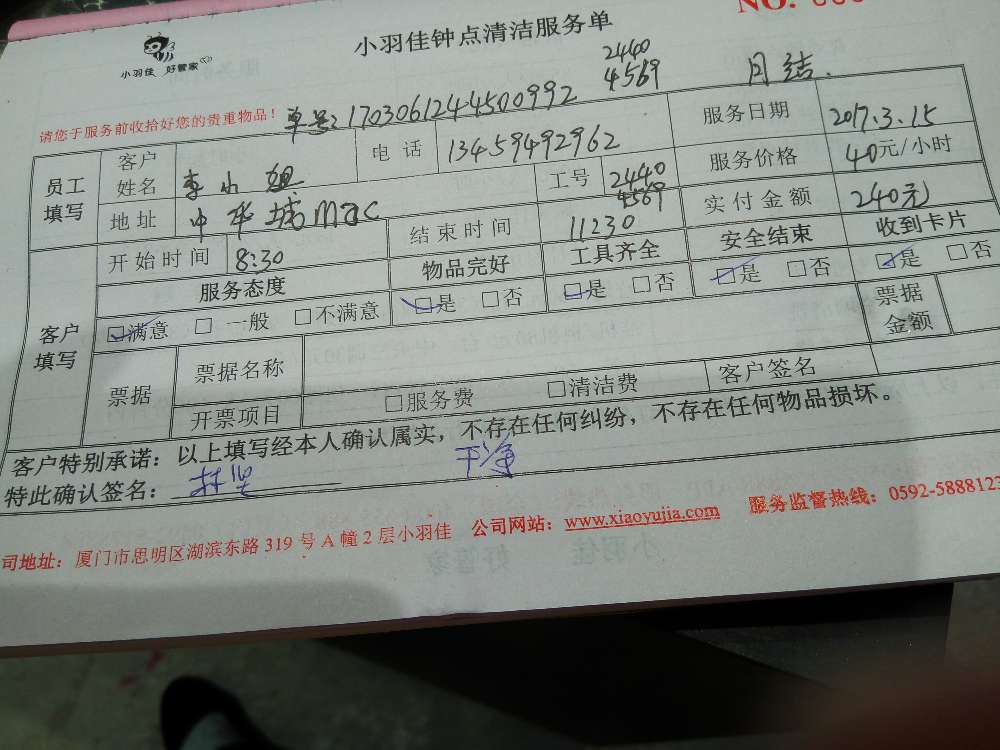 NO.
小羽佳 好管家
小羽佳钟点清洁服务单
2440
4569
月结.
请您于服务前收拾好您的贵重物品!
单号:1703061244500992
员工填写
客户姓名 李小姐
电话 13459492962
服务日期 2017.3.15
地址 中华城mac
工号 2440 4569
服务价格 40元/小时
客户填写
开始时间 8:30
结束时间 11230
实付金额 240元
服务态度 物品完好 工具齐全 安全结束 收到卡片
☑满意 □一般 □不满意 ☑是 □否 ☑是 □否 ☑是 □否 ☑是 □否
票据 票据名称 票据金额
开票项目 □服务费 □清洁费 客户签名
客户特别承诺:以上填写经本人确认属实,不存在任何纠纷,不存在任何物品损坏。
特此确认签名: 干净
司地址:厦门市思明区湖滨东路 319 号 A 幢 2 层小羽佳 公司网站:www.xiaoyujia.com 服务监督热线:0592-5888123